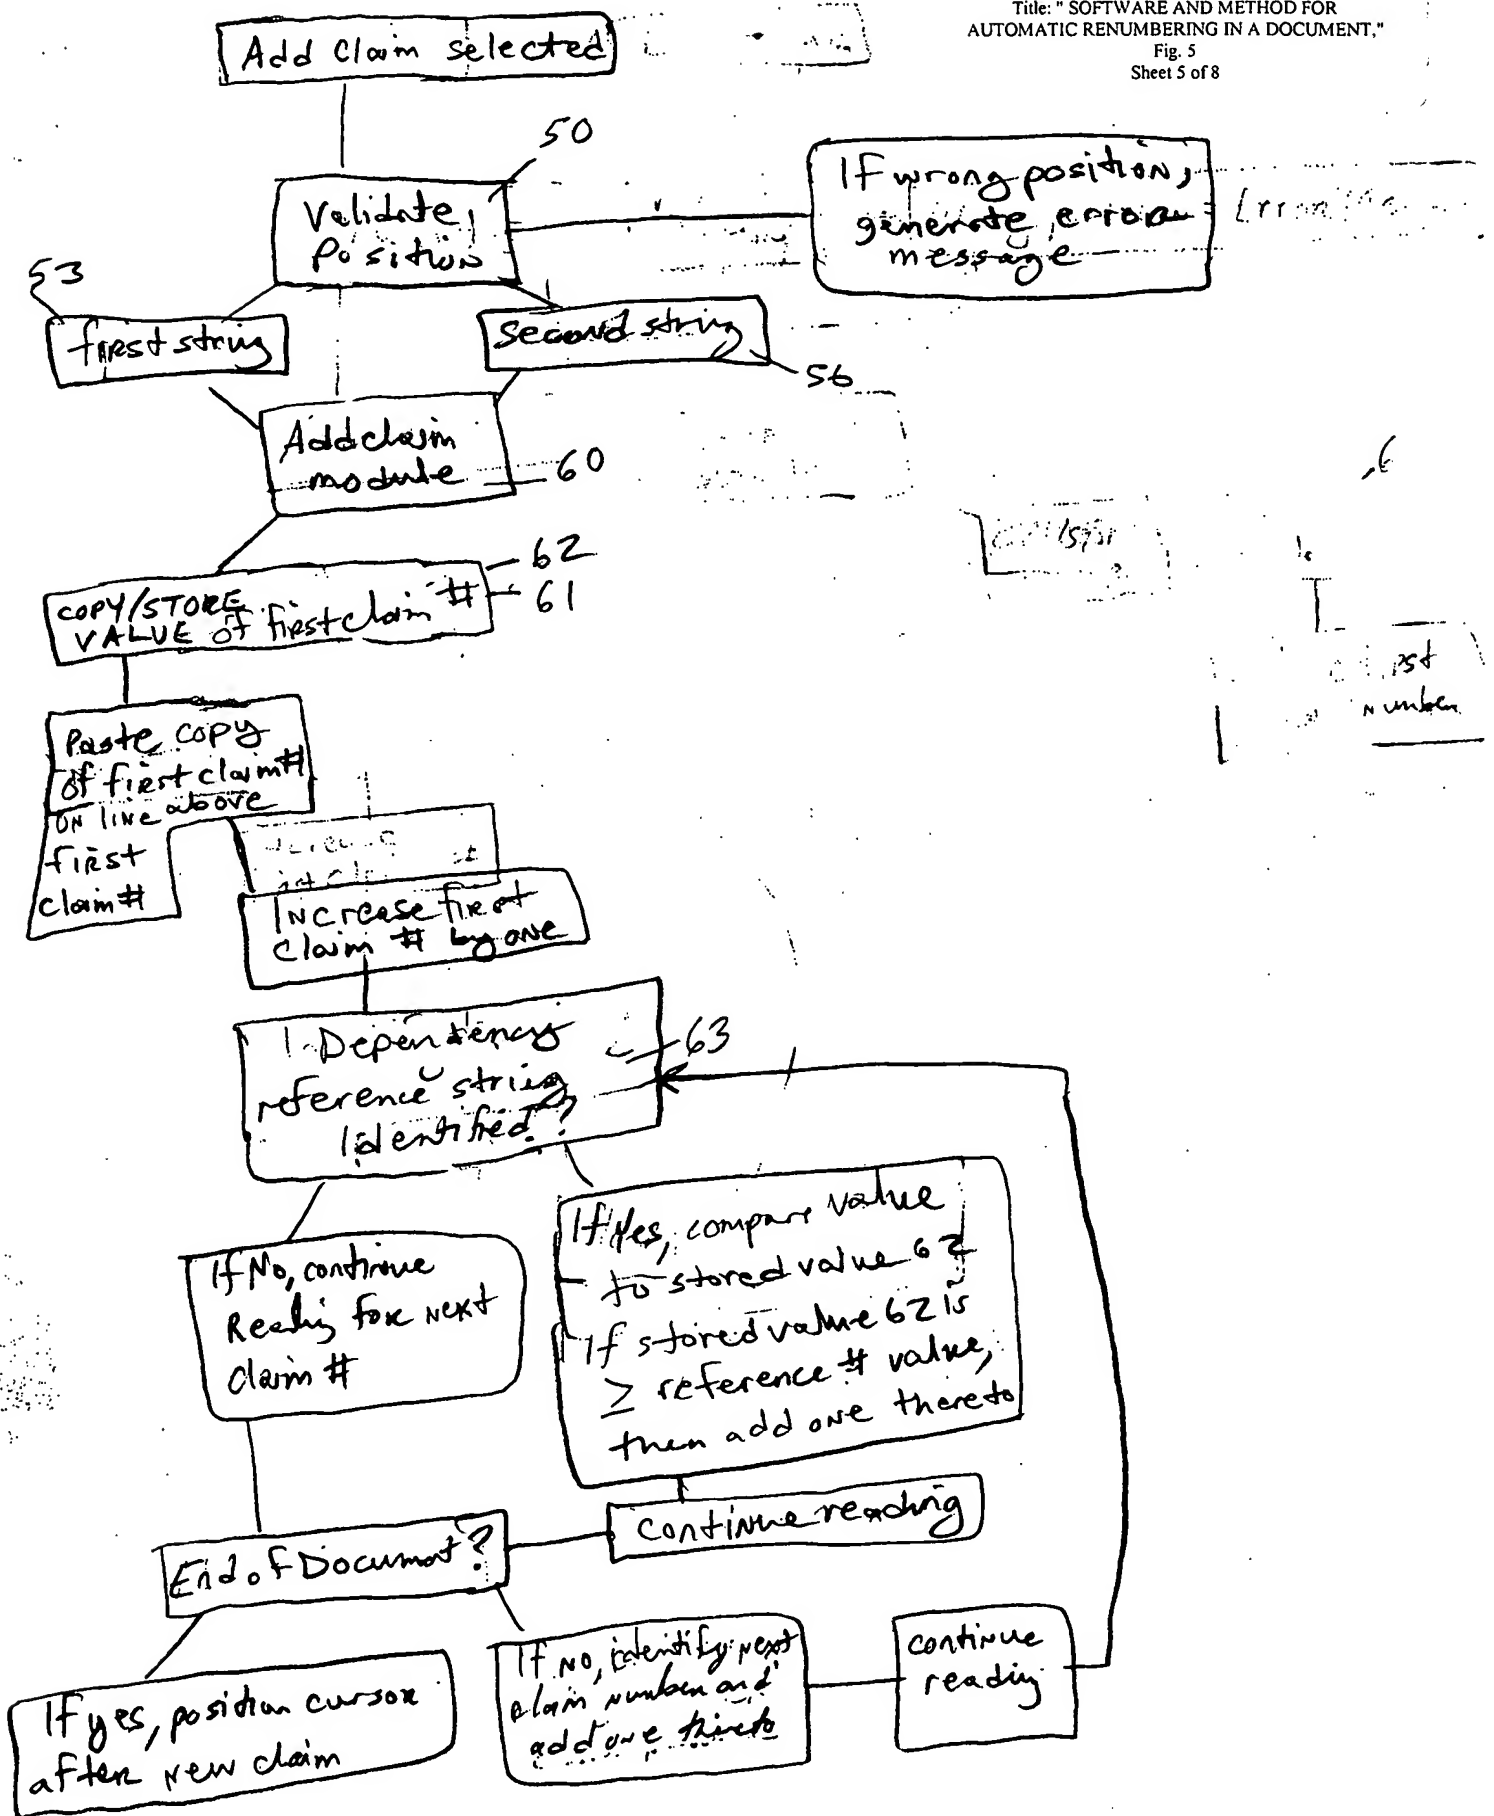 Title: " SOFTWARE AND METHOD FOR
AUTOMATIC RENUMBERING IN A DOCUMENT,"
Fig. 5
Sheet 5 of 8
Add claim selected
50
Validate
Position
If wrong position,
generate error
message
53
first string
second string
56
Add claim
module
60
62
61
COPY/STORE
VALUE of first claim #
Paste copy
of first claim #
on line above
first
claim #
Increase first
claim # by one
Dependency
reference string
Identified?
63
If No, continue
Reading for next
claim #
If Yes, compare value
to stored value 62
If stored value 62 is
≥ reference # value,
then add one thereto
continue reading
End of Document?
If yes, position cursor
after new claim
If no, identify next
claim number and
add one thereto
continue
reading
number